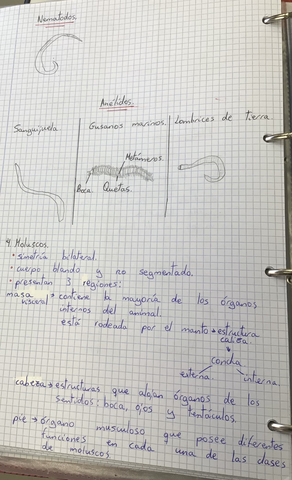 Nemátodos.
Anélidos.
Sanguijuela
Gusanos marinos.
Lombrices de tierra
Metámeros.
Boca.
Quetas.
4. Moluscos.
• simetría bilateral.
• cuerpo blando y no segmentado.
• presentan 3 regiones:
masa visceral → contiene la mayoría de los órganos
internos del animal.
está rodeado por el manto → estructura
caliza
concha
externa
interna
cabeza → estructuras que alojan órganos de los
sentidos: boca, ojos y tentáculos.
pie → órgano musculoso que posee diferentes
funciones en cada una de las clases
de moluscos